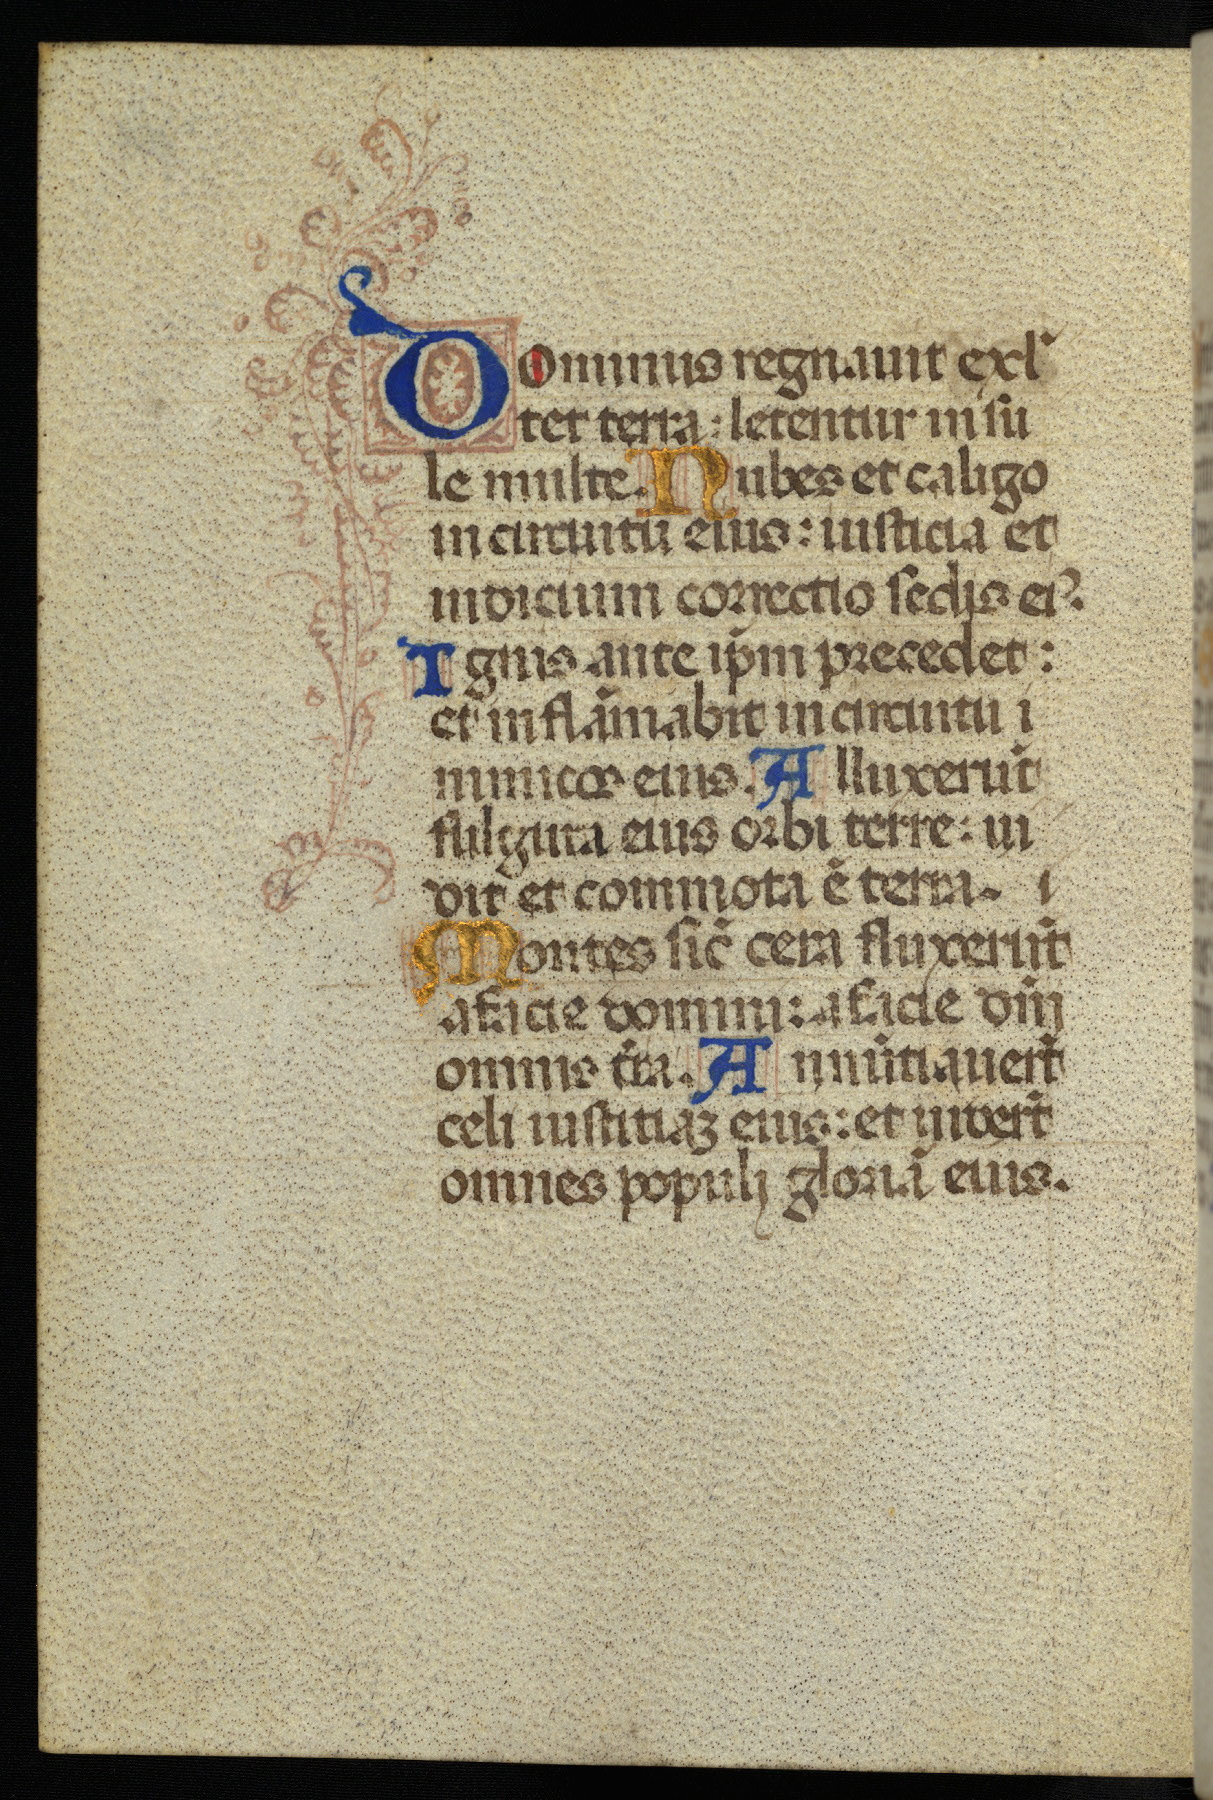 Dominus regnauit exl'
tet terra: letentur in sū
le multe. Nubes et caligo
in circuitu eius: iusticia et
iudicium correctio sedis ei9.
Ignis ante ip̄m precedet:
et inflām̄abit in circuitu i
nimicoꝝ eius. Alluxerūt
fulgura eius orbi terre: ui
dit et commota ē terra.
Montes sic̄ cera fluxerūt
a facie domini: a facie dn̄i
omnis t̄ra. Annūtiauert̄
celi iustitiaꝫ eius: et uidert̄
omnes populi gloriā eius.